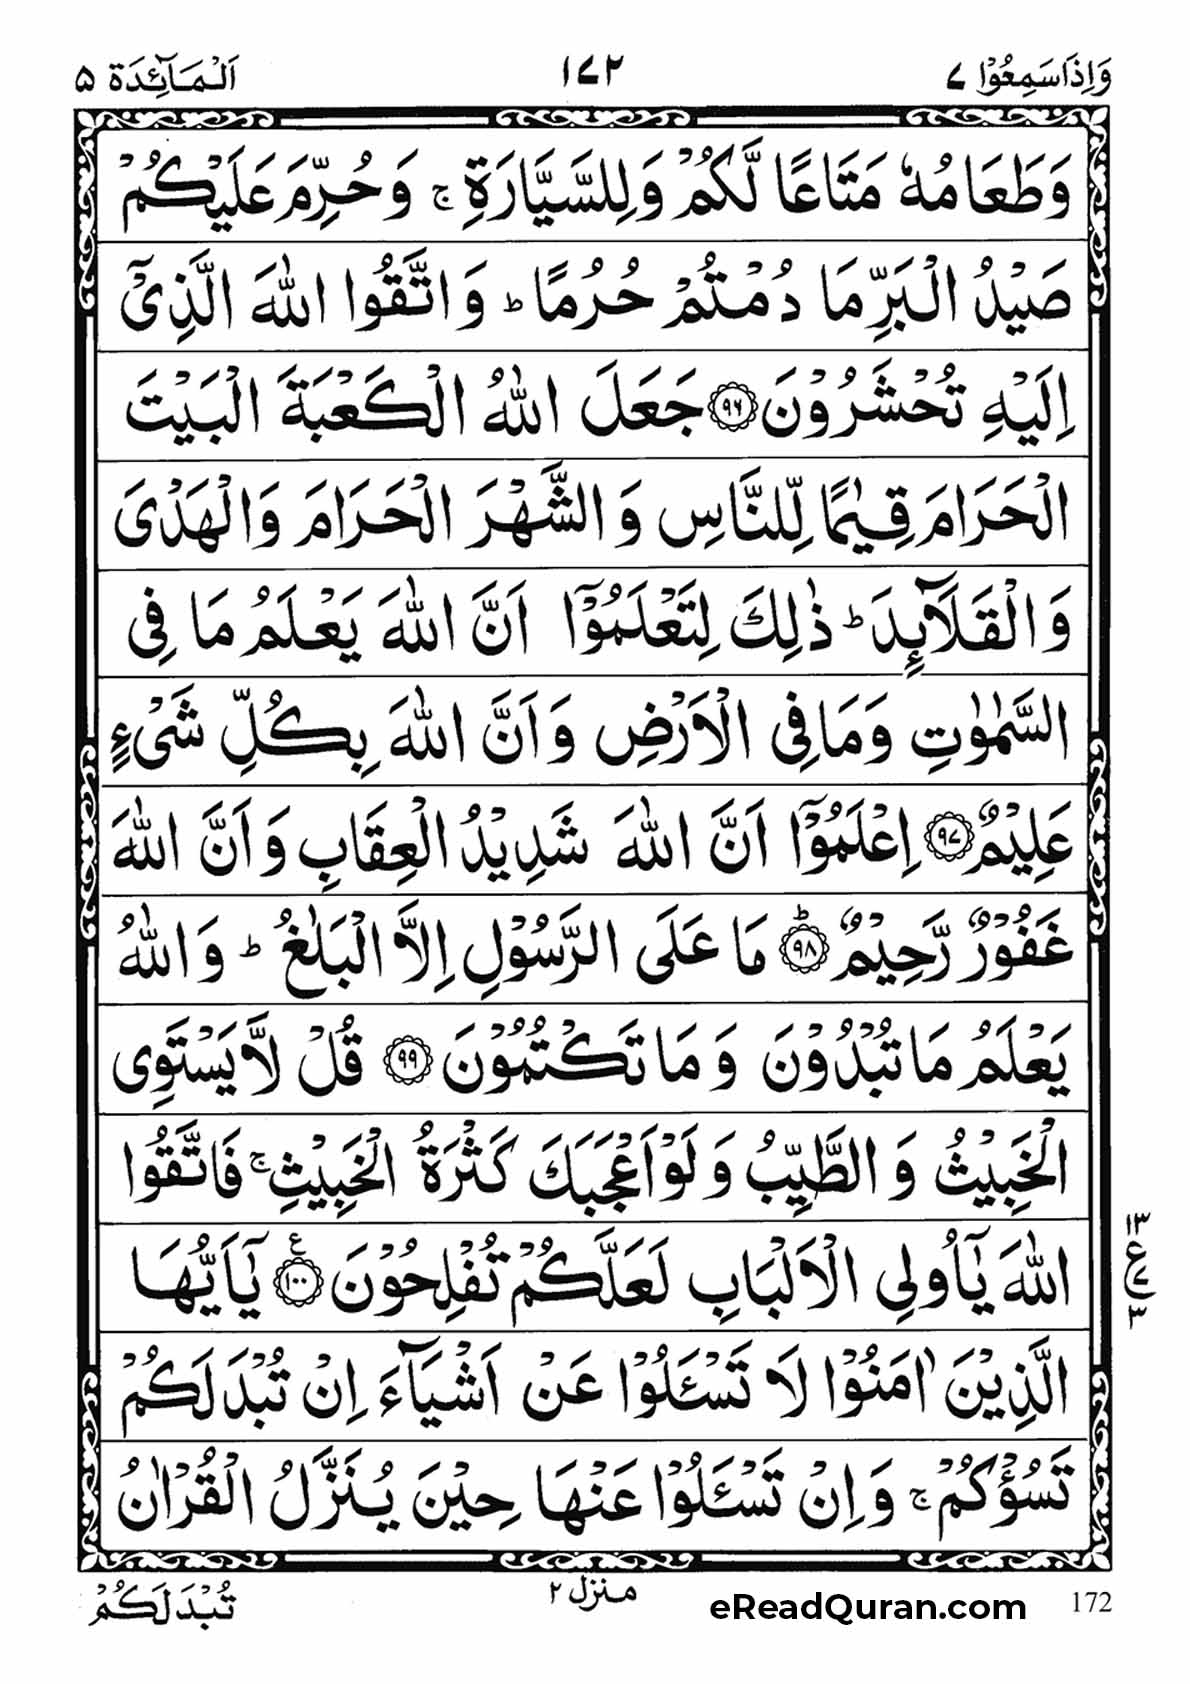 وَاِذَا سَمِعُوْا ۷
۱۷۲
اَلْمَآئِدَة ۵
وَطَعَامُهٗ مَتَاعًا لَّكُمْ وَلِلسَّيَّارَةِ ۚ وَحُرِّمَ عَلَيْكُمْ
صَيْدُ الْبَرِّ مَا دُمْتُمْ حُرُمًا ؕ وَاتَّقُوا اللّٰهَ الَّذِىْۤ
اِلَيْهِ تُحْشَرُوْنَ ۹۶ جَعَلَ اللّٰهُ الْكَعْبَةَ الْبَيْتَ
الْحَرَامَ قِيٰمًا لِّلنَّاسِ وَالشَّهْرَ الْحَرَامَ وَالْهَدْىَ
وَالْقَلَآئِدَ ؕ ذٰلِكَ لِتَعْلَمُوْۤا اَنَّ اللّٰهَ يَعْلَمُ مَا فِى
السَّمٰوٰتِ وَمَا فِى الْاَرْضِ وَاَنَّ اللّٰهَ بِكُلِّ شَىْءٍ
عَلِيْمٌ ۹۷ اِعْلَمُوْۤا اَنَّ اللّٰهَ شَدِيْدُ الْعِقَابِ وَاَنَّ اللّٰهَ
غَفُوْرٌ رَّحِيْمٌ ؕ ۹۸ مَا عَلَى الرَّسُوْلِ اِلَّا الْبَلٰغُ ؕ وَاللّٰهُ
يَعْلَمُ مَا تُبْدُوْنَ وَمَا تَكْتُمُوْنَ ۹۹ قُلْ لَّا يَسْتَوِى
الْخَبِيْثُ وَالطَّيِّبُ وَلَوْ اَعْجَبَكَ كَثْرَةُ الْخَبِيْثِ ۚ فَاتَّقُوا
اللّٰهَ يٰۤاُولِى الْاَلْبَابِ لَعَلَّكُمْ تُفْلِحُوْنَ ۱۰۰ ع يٰۤاَيُّهَا
الَّذِيْنَ اٰمَنُوْا لَا تَسْئَلُوْا عَنْ اَشْيَآءَ اِنْ تُبْدَ لَكُمْ
تَسُؤْكُمْ ۚ وَاِنْ تَسْئَلُوْا عَنْهَا حِيْنَ يُنَزَّلُ الْقُرْاٰنُ
۱۳
ع ۷
۳
تُبْدَ لَكُمْ
منزل ۲
eReadQuran.com
172